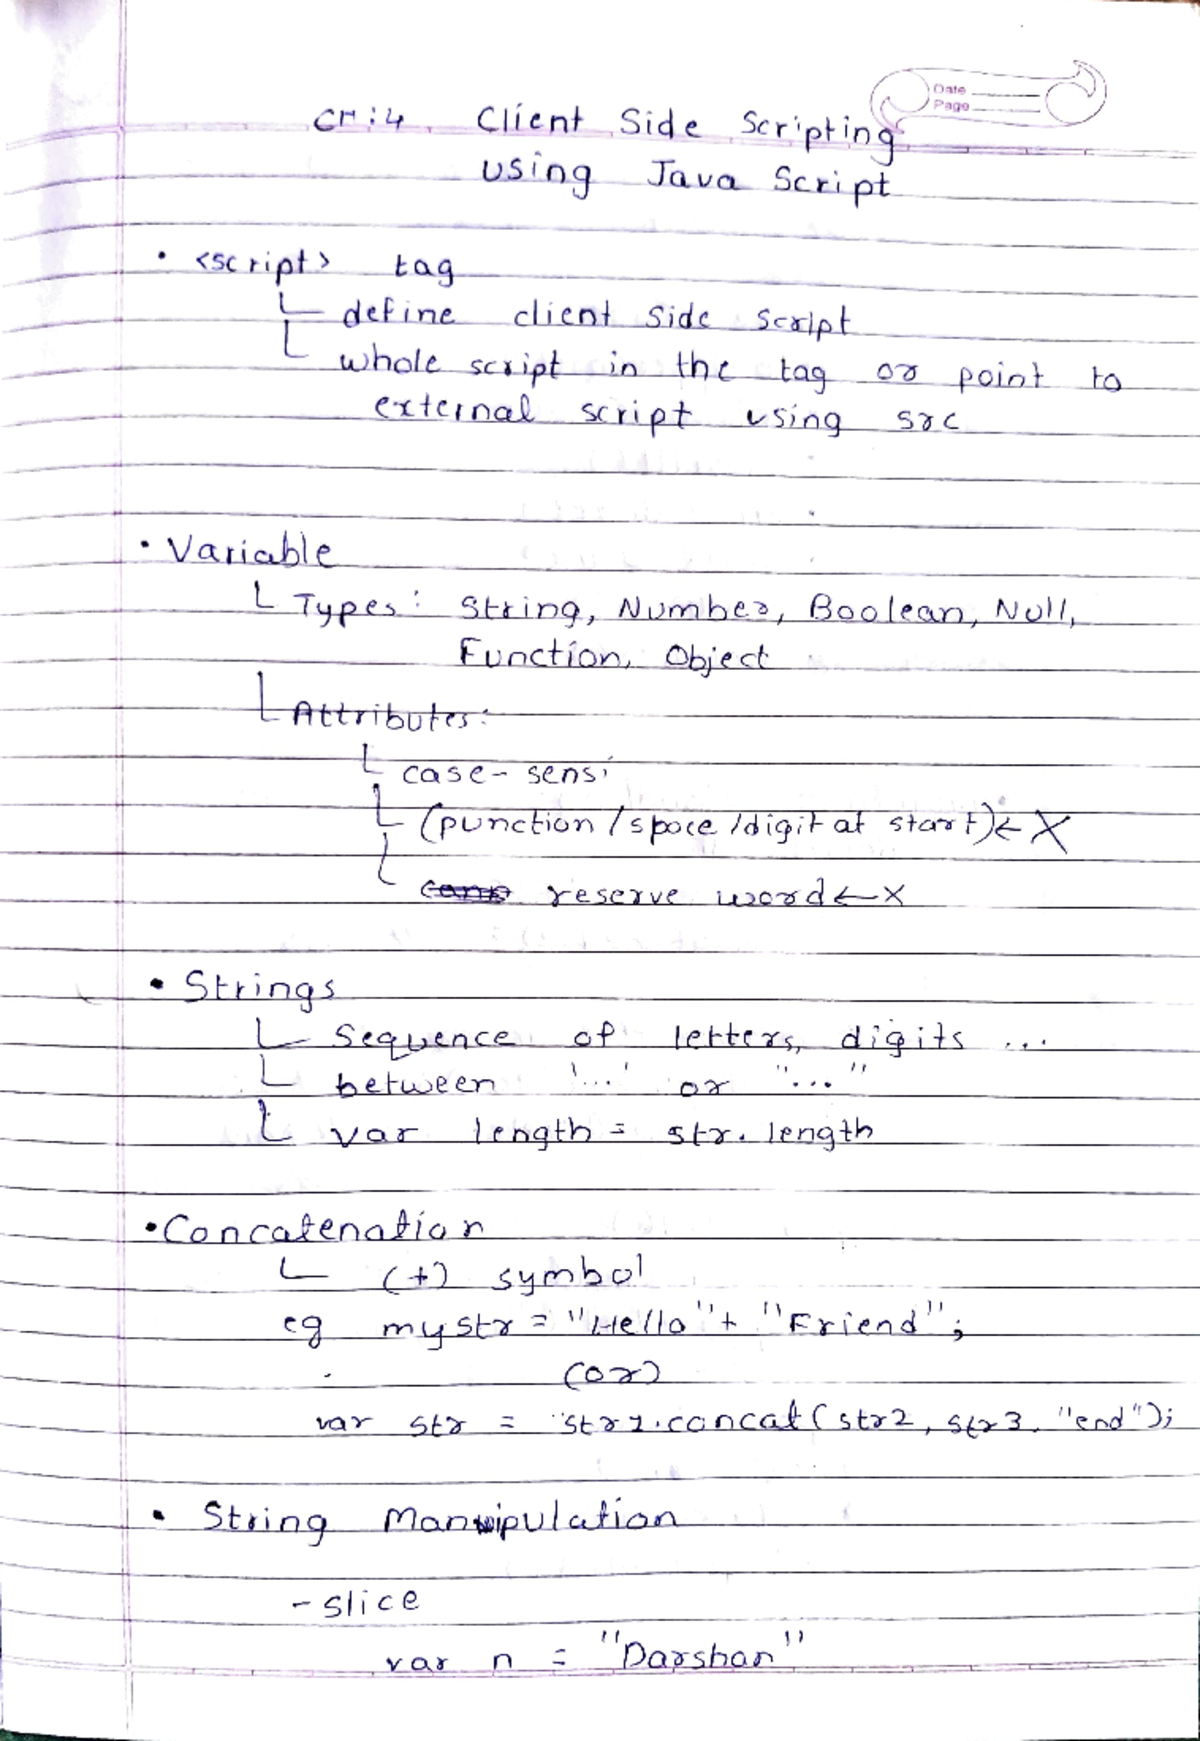 Date
Page
CH:4 Client Side Scripting
using Java Script
• <script> tag
define client side script
whole script in the tag or point to
external script using src
• Variable
Types: String, Number, Boolean, Null,
Function, Object
Attributes:
case-sensi
(punction/space/digit at start)← X
reserve word ← X
• Strings
Sequence of letters, digits ...
between '...' or "..."
var length = str.length
• Concatenation
(+) symbol
eg mystr = "Hello" + "Friend";
(or)
var str = str1.concat(str2, str3, "end");
• String Manipulation
- slice
var n = "Darshan"